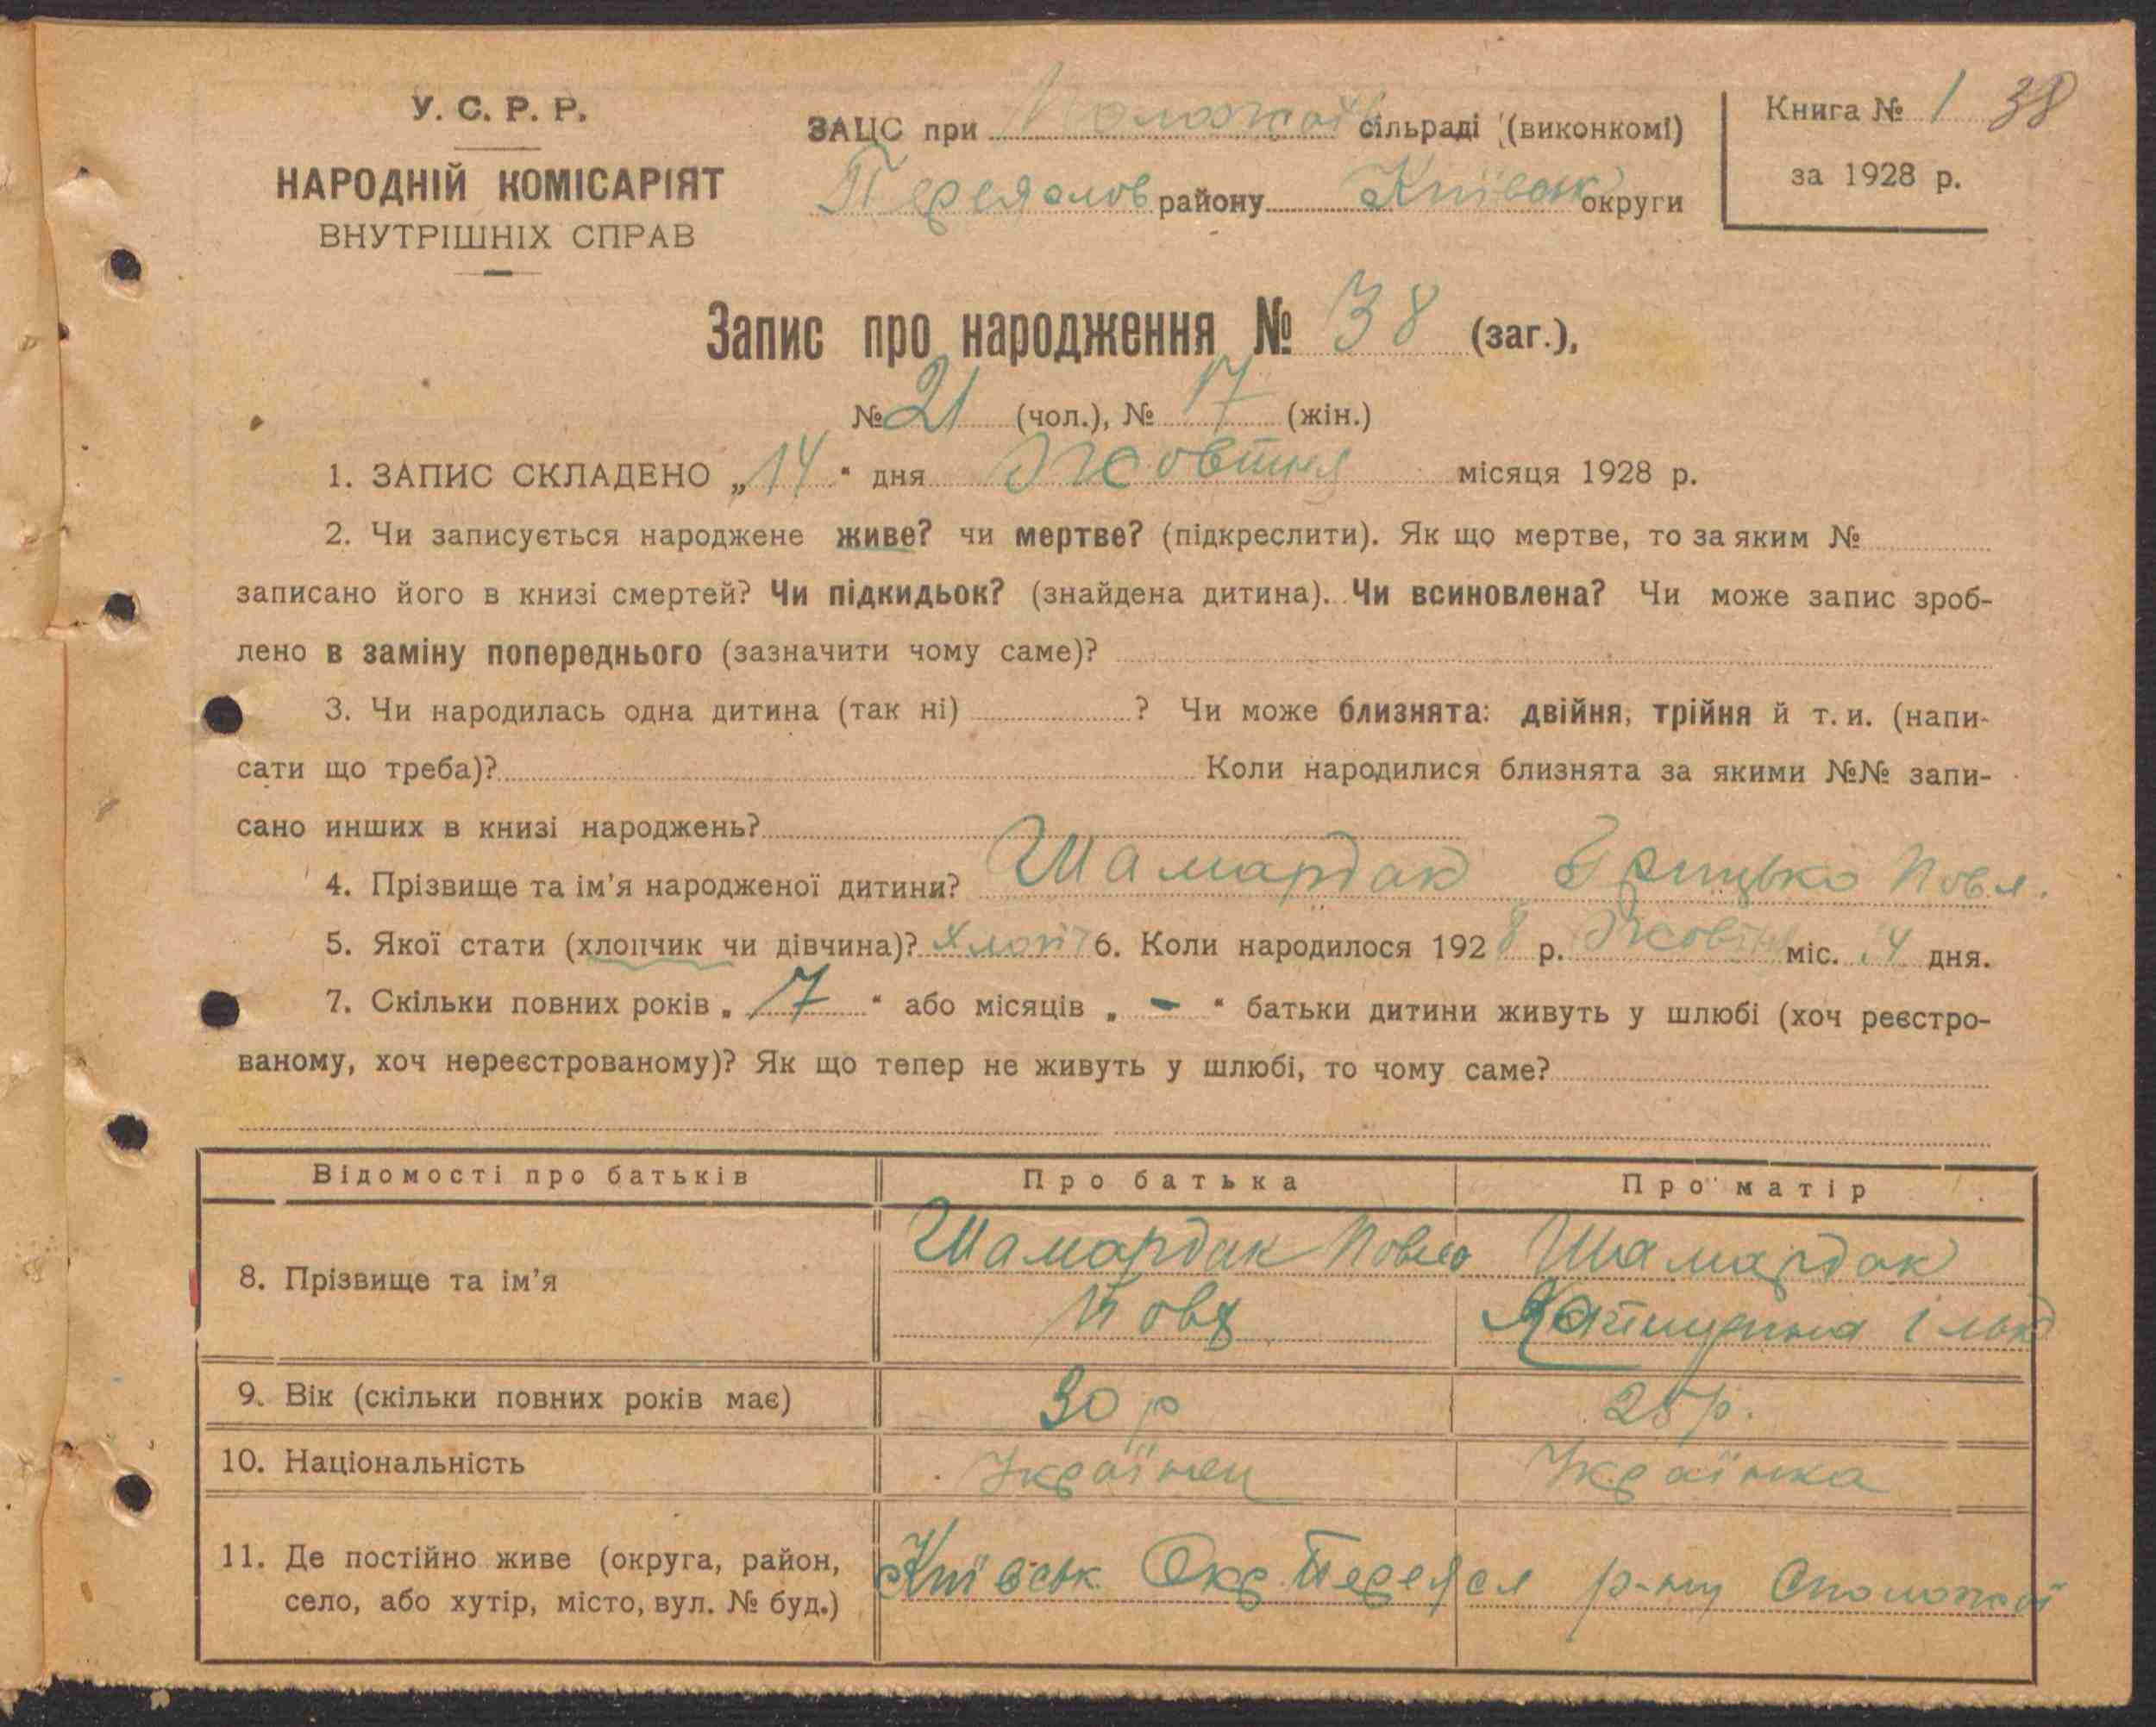 У. С. Р. Р.
НАРОДНІЙ КОМІСАРІЯТ
ВНУТРІШНІХ СПРАВ
ЗАЦС при сільраді (виконкомі)
Переяслов району Київськ округи
Книга № 1 38
за 1928 р.
Запис про народження № 38 (заг.),
№ 21 (чол.), № 17 (жін.)
1. ЗАПИС СКЛАДЕНО „14“ дня Жовтня місяця 1928 р.
2. Чи записується народжене живе? чи мертве? (підкреслити). Як що мертве, то за яким №
записано його в книзі смертей? Чи підкидьок? (знайдена дитина). Чи всиновлена? Чи може запис зроб-
лено в заміну попереднього (зазначити чому саме)?
3. Чи народилась одна дитина (так ні) ? Чи може близнята: двійня, трійня й т. и. (напи-
сати що треба)? Коли народилися близнята за якими №№ запи-
сано инших в книзі народжень?
4. Прізвище та ім’я народженої дитини? Шамардак Грицько Повл.
5. Якої стати (хлопчик чи дівчина)? хлоп 6. Коли народилося 1928 р. Жовтня міс. 14 дня.
7. Скільки повних років „ 7 “ або місяців „ - “ батьки дитини живуть у шлюбі (хоч реєстро-
ваному, хоч нереєстрованому)? Як що тепер не живуть у шлюбі, то чому саме?
Відомості про батьків Про батька Про матір
8. Прізвище та ім’я Шамардак Повло Шамардак
9. Вік (скільки повних років має) 30 р 25 р.
10. Національність Українец Українка
11. Де постійно живе (округа, район,
село, або хутір, місто, вул. № буд.) Київськ Окр. Переясл р-ну